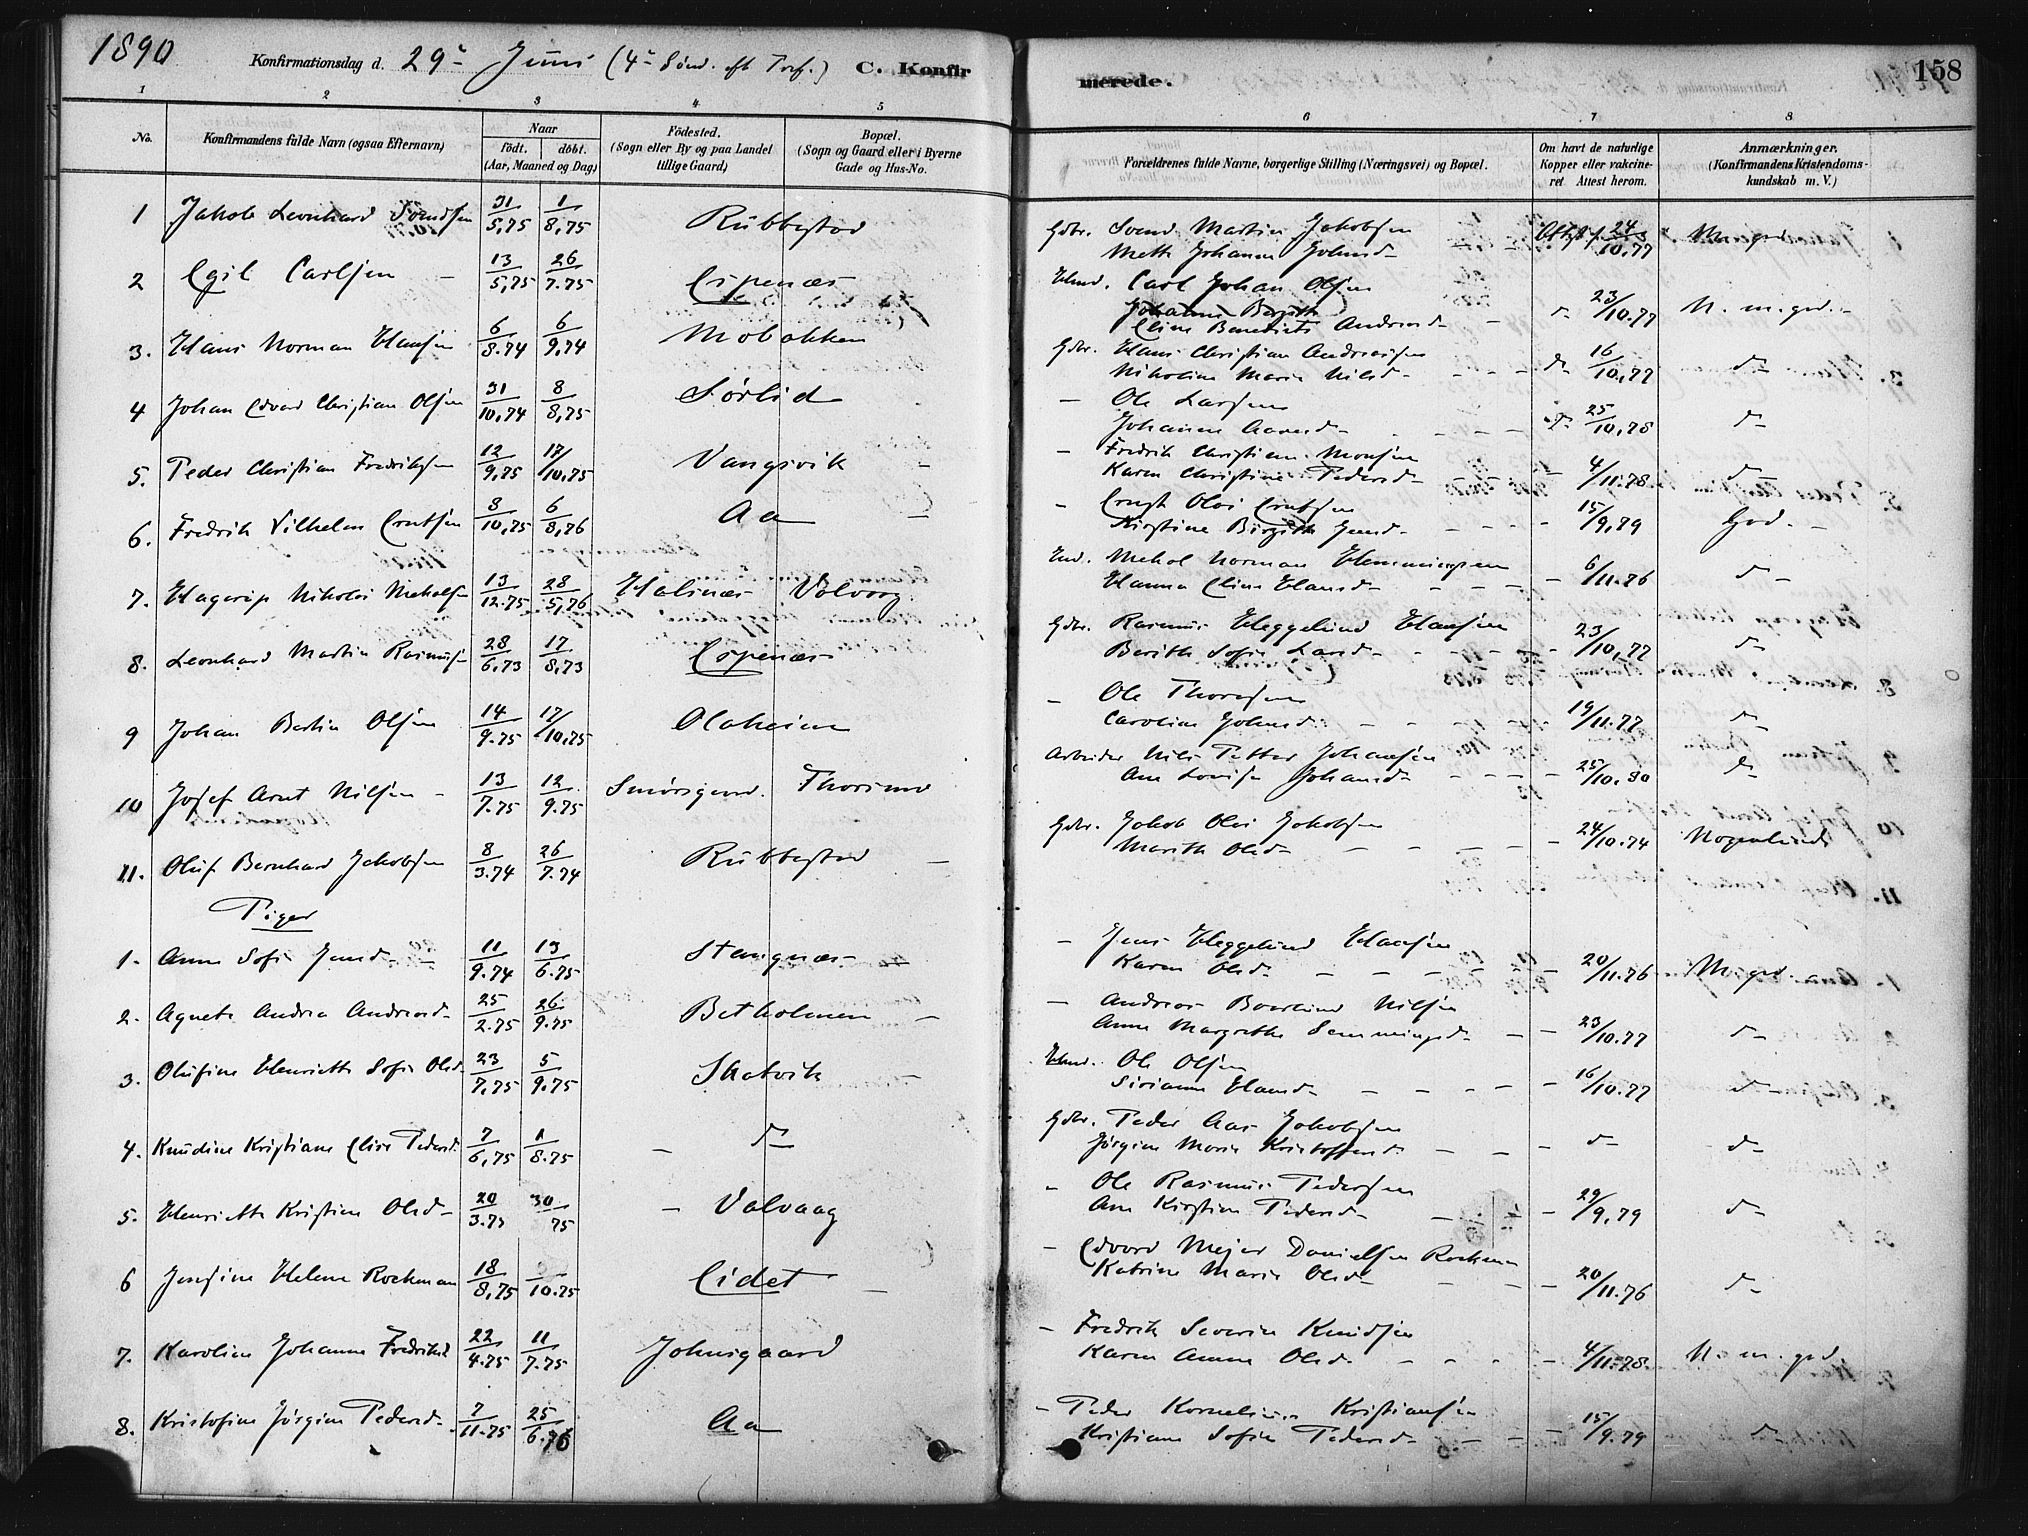 1890 Konfirmationsdag d. 29 Juni (4 Sönd. eft Tref.) C. Konfirmerede. 158
1 2 3 4 5 6 7 8
No. Konfirmandens fulde Navn (ogsaa Efternavn) Naar födt. döbt. (Aar, Maaned og Dag) Födested. (Sogn eller By og paa Landet tillige Gaard) Bopæl. (Sogn og Gaard eller i Byerne Gade og Hus-No. Forældrenes fulde Navne, borgerlige Stilling (Næringsvei) og Bopæl. Om havt de naturlige Kopper eller vakcineret Attest herom. Anmærkninger. (Konfirmandens Kristendomskundskab m. V.)
1 Jakob Leonhard Svendsen 31/5,75 1/8,75 Rubbestad Gdbr. Svend Martin Jakobsen 24/10,77 M. god
Johansd
2 Egil Carlsen 13/5,75 26/7.75 Espenæs Carl Johan Olsen 23/10.77 N. m. god.
Eline Andreasd
3. Hans Norman Hansen 6/8.74 6/9,74 Mobakken Gdbr. Hans Christian Andreassen d 16/10,77 d
Nikoline Marie Nilsd
4 Johan Edvard Christian Olsen 31/10,74 8/8,75 Sørlid Ole Larsen 25/10,78 d
Johanna
5. Peder Christian Fredriksen 12/9,75 17/10,75 Vangsvik Fredrik Christian Monsen 4/11.78 d
Karen Christine Pedersd
6. Fredrik Vilhelm Erntsen 8/10,75 6/8,76 Aa 15/9,79 God
Kirstine Birgith Jensd
7. Hagerup Nikolai 13/12.75 28/5,76 Halsnæs Norman Hemmingsen 6/11.76 d
Hanna Eline Hansd
8. Leonhard Martin Rasmusn 28/6,73 17/8,73 Espenæs Gdbr. Rasmus Heggelund Hansen 23/10,77 d
Berith Sofie Larsd
9 Johan Bertin Olsen 14/9.75 17/10,75 Olaheim Ole Thoresen 19/11.77 d
Caroline Johnsd
10 Josef Arnt Nilsen 13/7.75 12/9.75 Arbeider Nils Petter Johansen 25/10.80 d
Ane Lovise Johansd
11. Oluf Bernhard Jakobsen 8/3.74 26/7.74 Rubbestad Gdbr. Jakob Olai Jakobsen 24/10.74 Nogenlunde
Marith Olsd
Piger
1. Anne Sofie Jensd 11/9.74 13/6.75 Stangnæs Jens Heggelund Hansen 20/11.76 M. god
Karen Olsd
2. Agnete Andrea Andreasd 25/2.75 26/9.75 Betholmen Andreas Nilsen 23/10.77 d
Anne Margrethe Semmingsd
3. Olufine Henriette Sofie Olsd 23/7,75 5/9.75 Skatvik Ole Olsen 16/10.77 d
Sirianne Hansd
4. Knudine Kristiane Elise Pedersd 7/6,75 1/8.75 d Gdbr. Peder Aas Jakobsen d d
Jørgine Marie Kristoffersd
5. Henriette Kristine Olsd 20/3.75 30/75 Valvaag Ole Rasmus Pedersen 29/9,79 d
Ane Kirstine Pedersd
6 Josefine Helene Rockman 18/8,75 /10.75 Eidet Edvard Mejer Danielsen Rockman 20/11.76 d
Katrine Marie Olsd
7. Karoline Johanne Fredriksd 22/4.75 11/7.75 Johnsgaard Fredrik Severin Knudsen 4/11.78. N. m. god
Karen Anne Olsd
8. Kristofine Jørgine Pedersd 7/11.75 25/6.76 Aa Peder Kornelius Kristiansen 15/9.79 d
Kristiane Sofie Pedersd